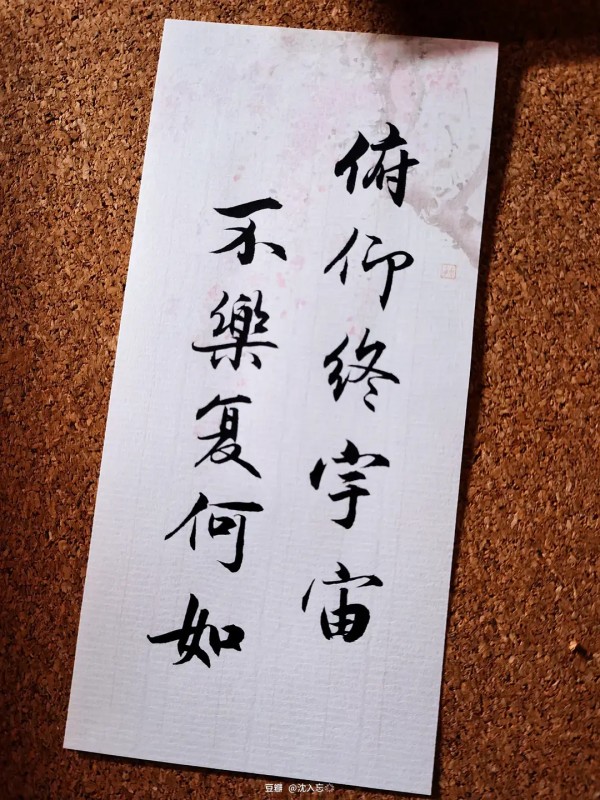 俯仰终宇宙
不樂复何如
豆瓣 @沈入忘